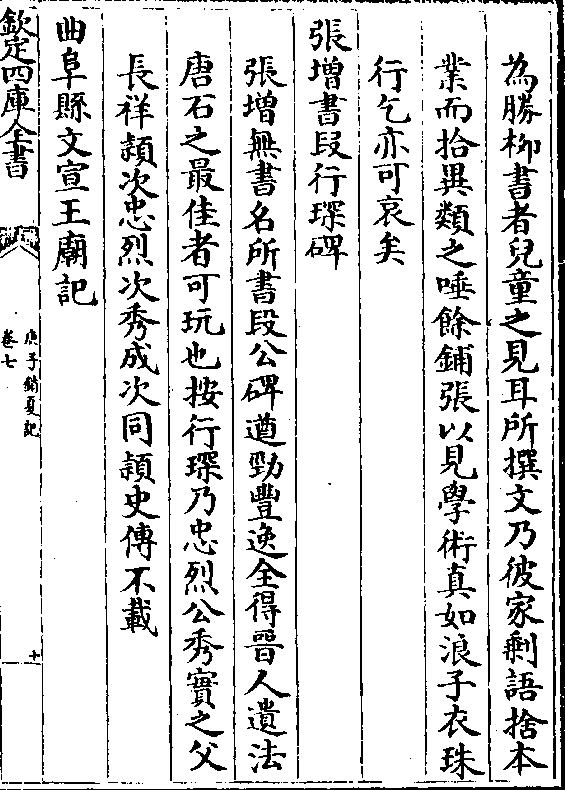 為勝柳書者兒童之見耳所撰文乃彼家剩語捨本
業而拾異類之唾餘鋪張以見學術真如浪子衣珠
行乞亦可哀矣
張增書段行琛碑
張增無書名所書段公碑遒勁豐逸全得晉人遺法
唐石之最佳者可玩也按行琛乃忠烈公秀實之父
長祥頴次忠烈次秀成次同頴史傳不載
曲阜縣文宣王廟記
欽定四庫全書
庚子銷夏記
卷七
十